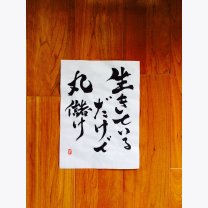 生きている
だけで
丸儲け